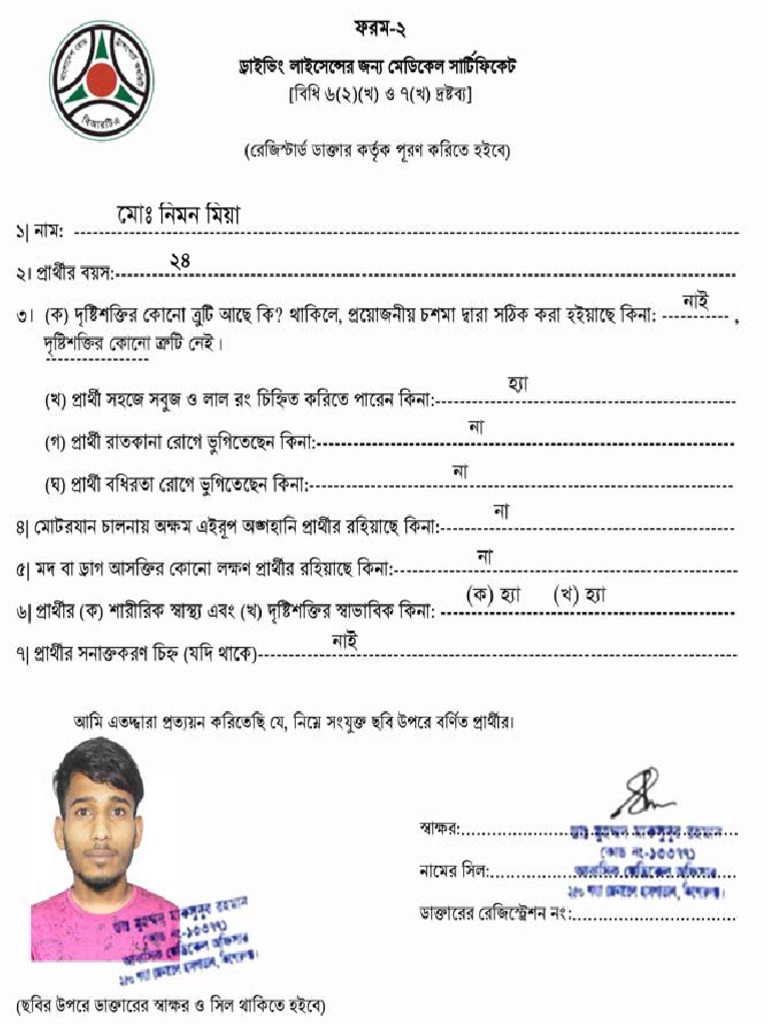 ফরম-২
ড্রাইভিং লাইসেন্সের জন্য মেডিকেল সার্টিফিকেট
[বিধি ৬(২)(খ) ও ৭(খ) দ্রষ্টব্য]
(রেজিস্টার্ড ডাক্তার কর্তৃক পূরণ করিতে হইবে)
বিআরটিএ
১| নাম: মোঃ নিমন মিয়া
২। প্রার্থীর বয়স: ২৪
৩। (ক) দৃষ্টিশক্তির কোনো ত্রুটি আছে কি? থাকিলে, প্রয়োজনীয় চশমা দ্বারা সঠিক করা হইয়াছে কিনা: নাই ,
দৃষ্টিশক্তির কোনো ত্রুটি নেই।
(খ) প্রার্থী সহজে সবুজ ও লাল রং চিহ্নিত করিতে পারেন কিনা: হ্যা
(গ) প্রার্থী রাতকানা রোগে ভুগিতেছেন কিনা: না
(ঘ) প্রার্থী বধিরতা রোগে ভুগিতেছেন কিনা: না
৪| মোটরযান চালনায় অক্ষম এইরূপ অঙ্গহানি প্রার্থীর রহিয়াছে কিনা: না
৫| মদ বা ড্রাগ আসক্তির কোনো লক্ষণ প্রার্থীর রহিয়াছে কিনা: না
৬| প্রার্থীর (ক) শারীরিক স্বাস্থ্য এবং (খ) দৃষ্টিশক্তির স্বাভাবিক কিনা: (ক) হ্যা (খ) হ্যা
৭| প্রার্থীর সনাক্তকরণ চিহ্ন (যদি থাকে) নাই
আমি এতদ্দ্বারা প্রত্যয়ন করিতেছি যে, নিম্নে সংযুক্ত ছবি উপরে বর্ণিত প্রার্থীর।
স্বাক্ষর:
ডাঃ মুহম্মদ মাকসুদুর রহমান
(কোড নং-১৩৩৭৭)
নামের সিল:
আবাসিক মেডিকেল অফিসার
ডাক্তারের রেজিস্ট্রেশন নং:
(ছবির উপরে ডাক্তারের স্বাক্ষর ও সিল থাকিতে হইবে)